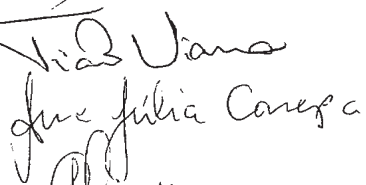 Tião Viana
Ana Júlia Carepa